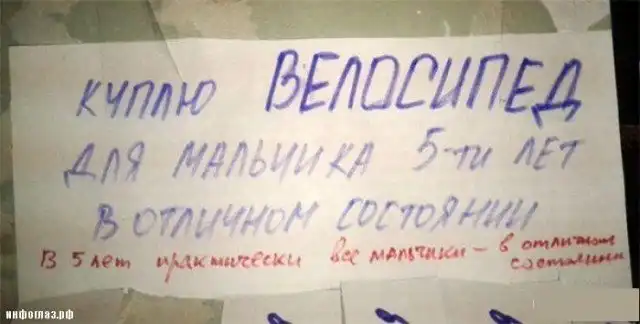 КУПЛЮ ВЕЛОСИПЕД
ДЛЯ МАЛЬЧИКА 5-ТИ ЛЕТ
В ОТЛИЧНОМ СОСТОЯНИИ
В 5 лет практически все мальчики – в отличном
состоянии
инфоглаз.рф